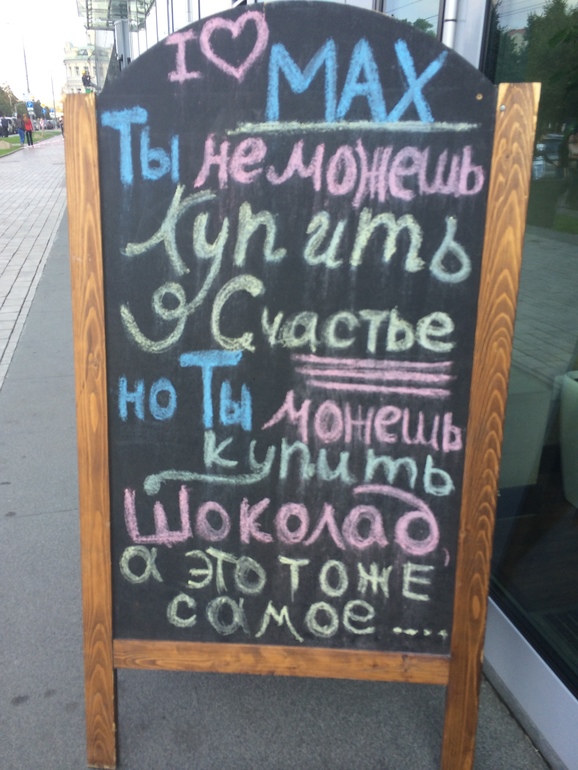 I ♡ MAX
Ты не можешь
Купить
Счастье
но Ты можешь
купить
Шоколад,
а это тоже
самое....